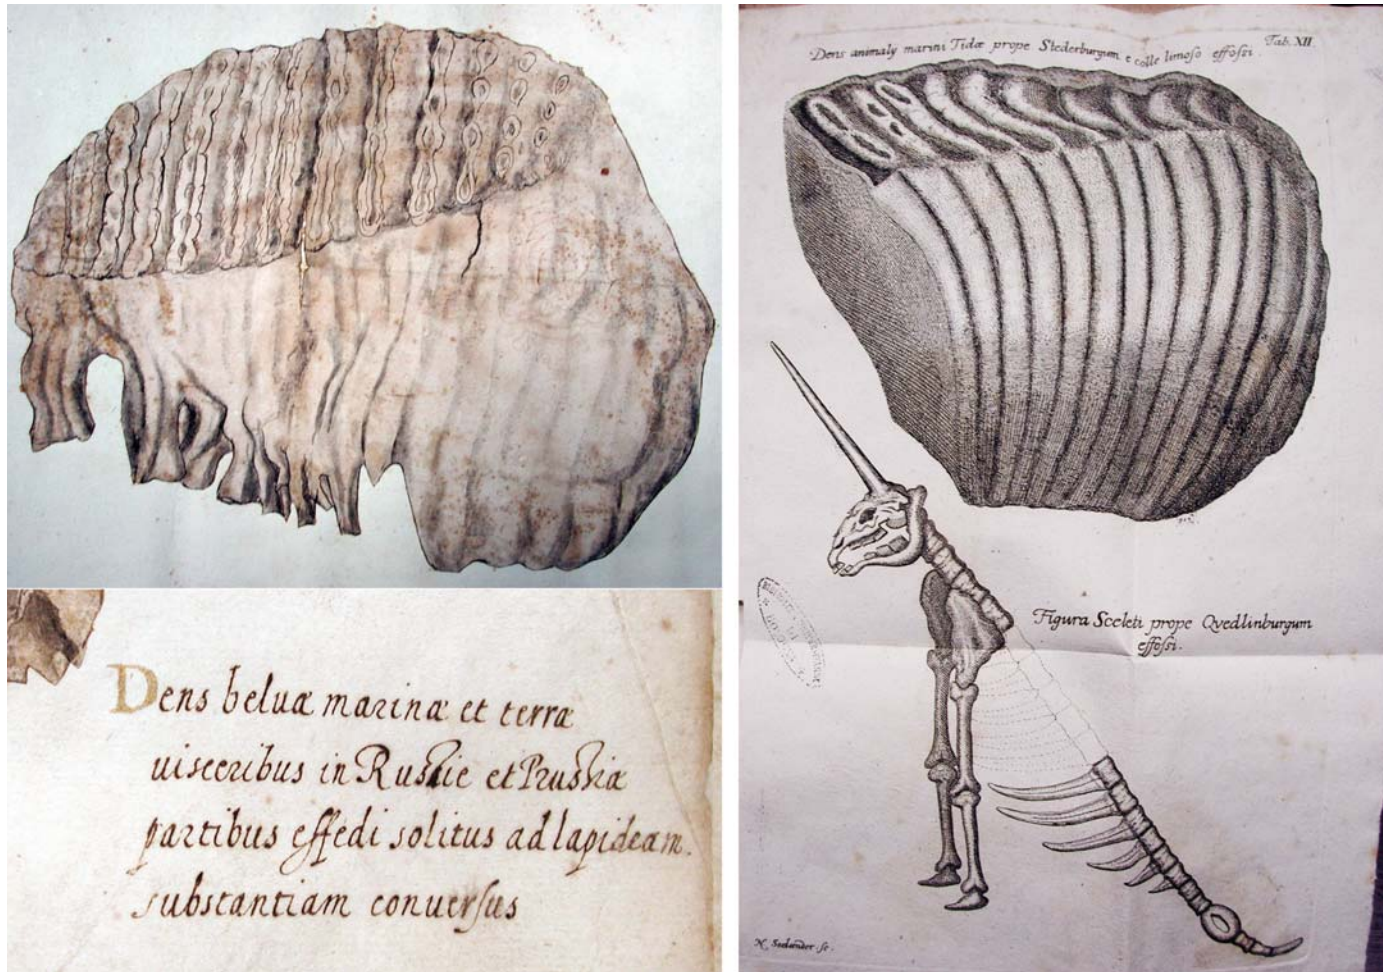 Dens beluæ marinæ et terræ
uisceribus in Rushie et Prushiæ
partibus effedi solitus ad lapideam
substantiam conuersus
Dens animaly marini Tidæ prope Stederburgum e colle limoso effossi.
Tab. XII.
Figura Sceleti prope Qvedlinburgum
effossi.
N. Seelænder. sc.